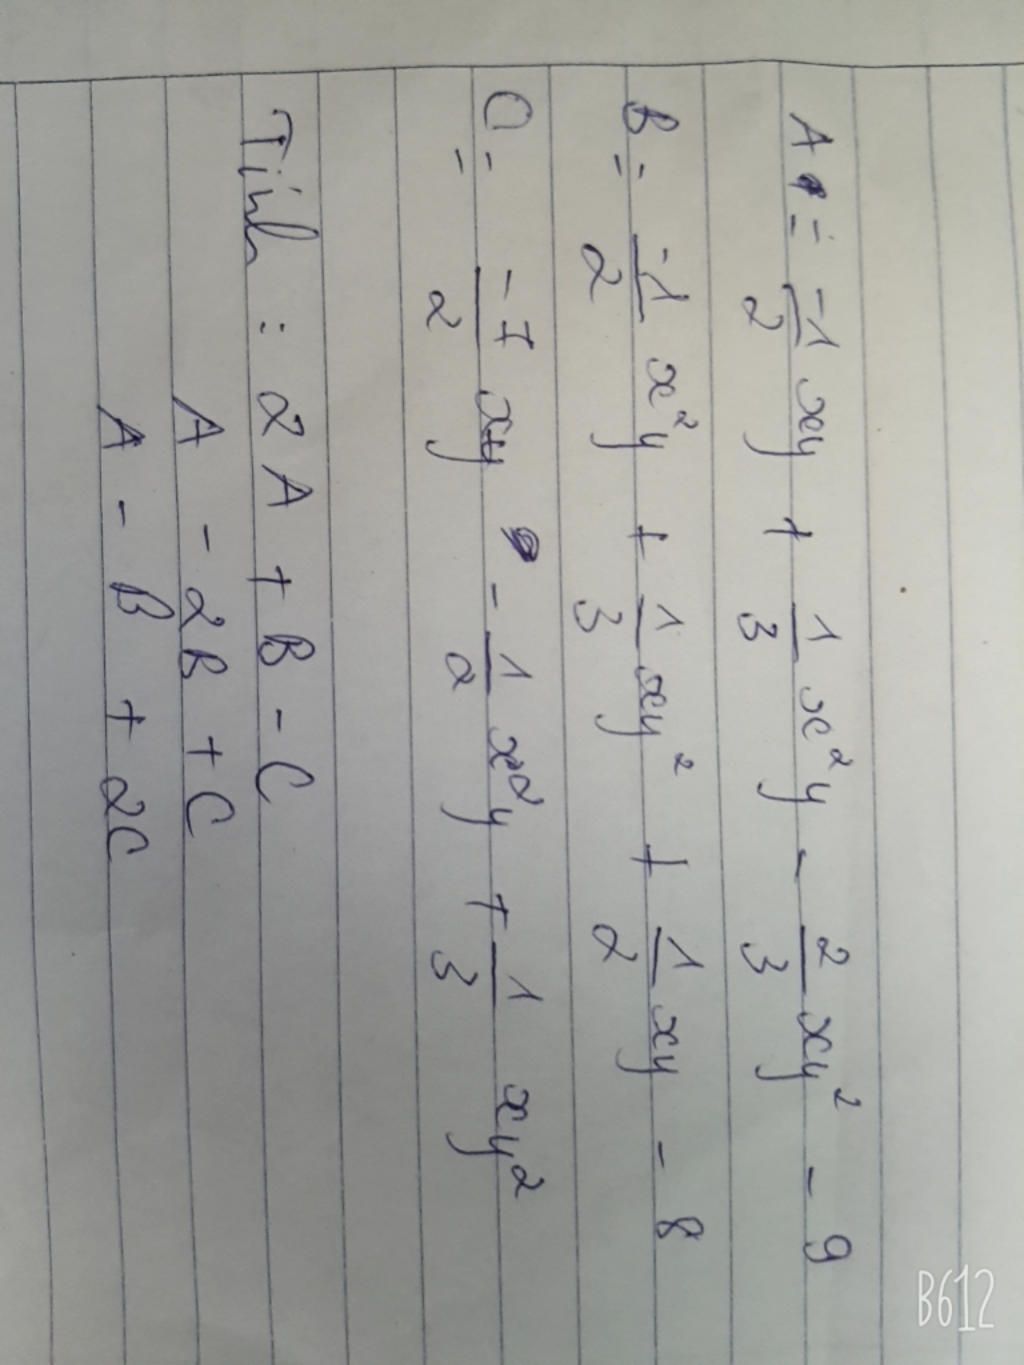 A = -1/2 xy + 1/3 x²y - 2/3 xy² - 9
B = -1/2 x²y + 1/3 xy² + 1/2 xy - 8
C = -7/2 xy - 1/2 x²y + 1/3 xy²
Tính : 2A + B - C
A - 2B + C
A - B + 2C
B612